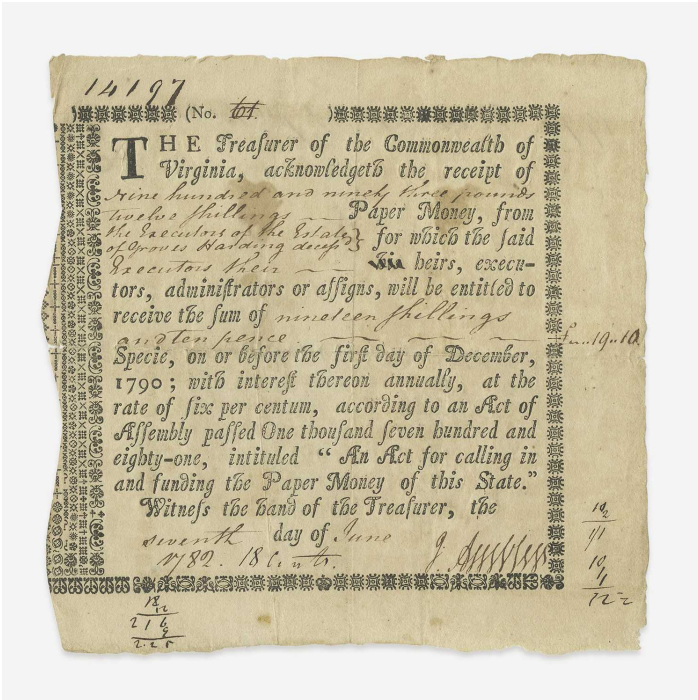 14197
(No. 61. )
THE Treaſurer of the Commonwealth of
Virginia, acknowledgeth the receipt of
Nine hundred and ninety three pounds
twelve ſhillings Paper Money, from
the Executors of the Estate
of Groves Harding decesd } for which the ſaid
Executors their his heirs, execu-
tors, adminiſtrators or aſſigns, will be entitled to
receive the ſum of nineteen ſhillings
and ten pence
Specie, on or before the firſt day of December,
1790; with intereſt thereon annually, at the
rate of ſix per centum, according to an Act of
Aſſembly paſſed One thouſand ſeven hundred and
eighty-one, intituled “ An Act for calling in
and funding the Paper Money of this State.”
Witneſs the hand of the Treaſurer, the
seventh day of June
1782. 18 Cents. J.
19..10
18
12
216
9
225
10
1/1
10